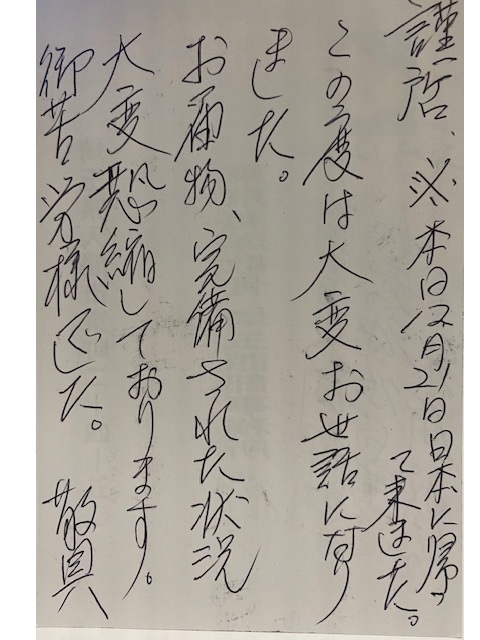 謹啓、※本日12月21日日本に帰っ
て来ました。
この度は大変お世話になり
ました。
お届物、完備された状況
大変恐縮しております。
御苦労様でした。 敬具